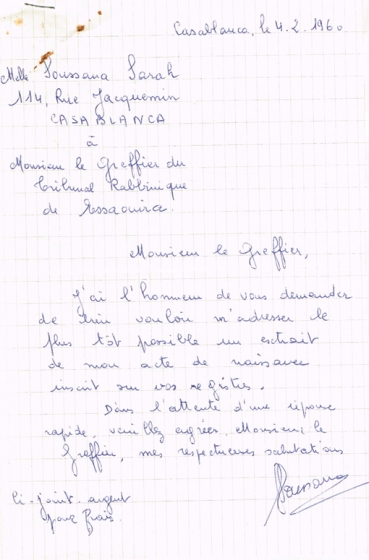 Casablanca, le 4.2.1960
Melle Soussana Sarah
114, Rue Jacquemin
CASABLANCA
à
Monsieur le Greffier du
Tribunal Rabbinique
de Essaouira.
Monsieur le Greffier,
J'ai l'honneur de vous demander
de bien vouloir m'adresser le
plus tôt possible un extrait
de mon acte de naissance
inscrit sur vos registres.
Dans l'attente d'une réponse
rapide, veuillez agréer, Monsieur le
Greffier, mes respectueuses salutations
Soussana
Ci-joint argent
pour frais.